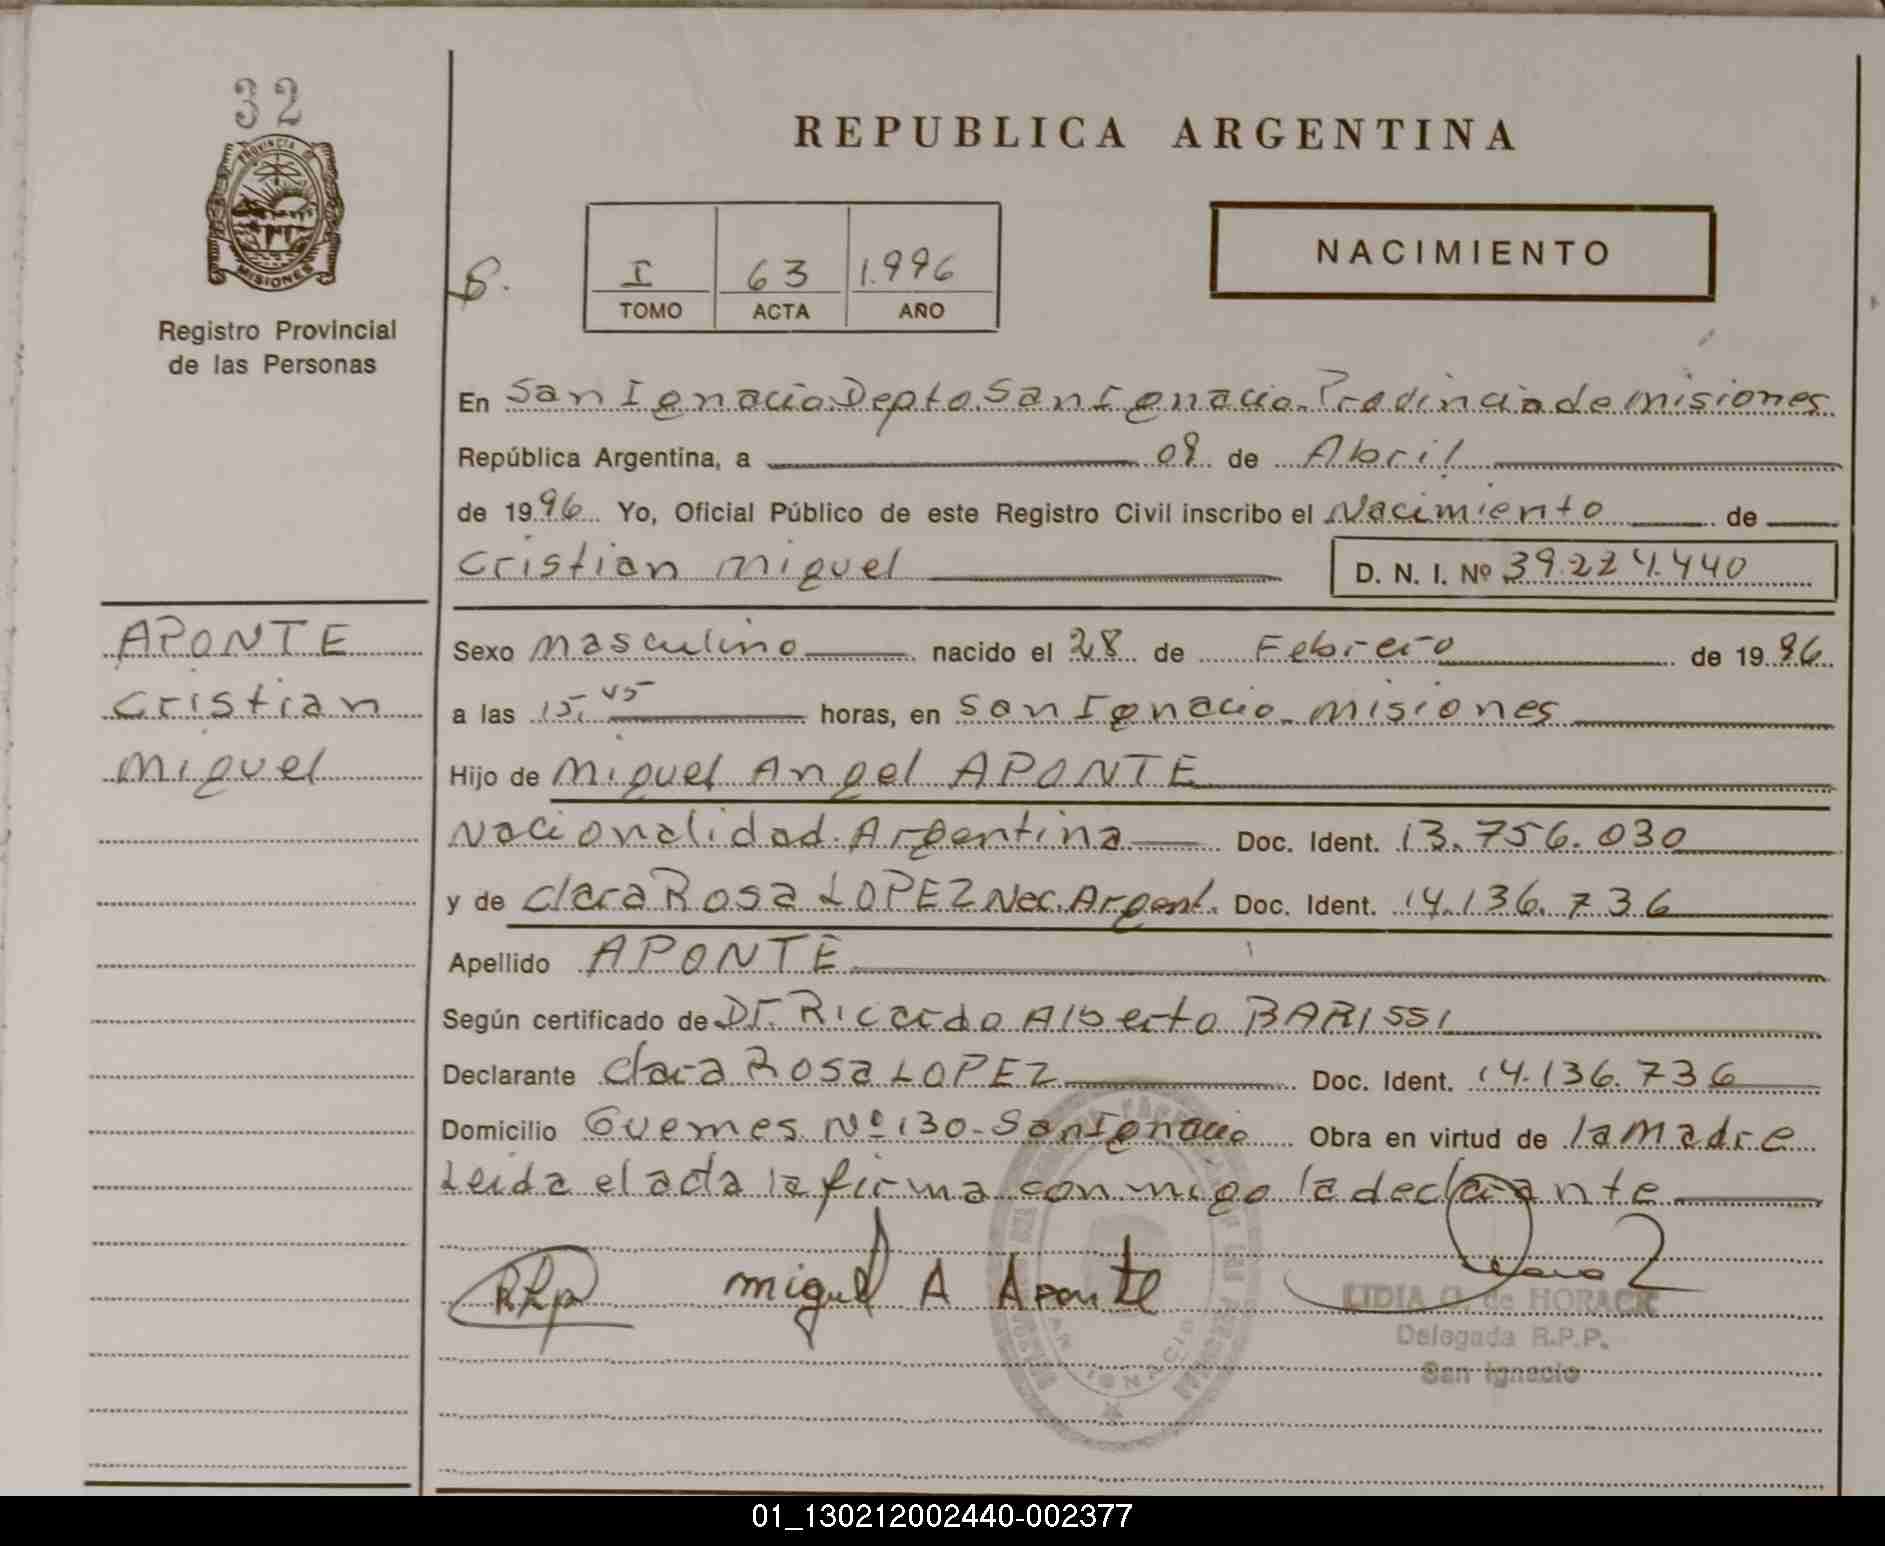 32
PROVINCIA DE
MISIONES
Registro Provincial
de las Personas
REPUBLICA ARGENTINA
NACIMIENTO
I 63 1.996
TOMO ACTA AÑO
En San Ignacio Depto. San Ignacio. Provincia de misiones
República Argentina, a 09 de Abril
de 1996 Yo, Oficial Público de este Registro Civil inscribo el Nacimiento de
Cristian Miguel D. N. I. Nº 39.224.440
APONTE
Cristian
Miguel
Sexo masculino nacido el 28 de Febrero de 1996
a las 15, 45 horas, en San Ignacio - misiones
Hijo de Miguel Angel APONTE
Nacionalidad. Argentina Doc. Ident. 13.756.030
y de Clara Rosa LOPEZ Nac. Argent. Doc. Ident. 14.136.736
Apellido APONTE
Según certificado de Dr. Ricardo Alberto BARISSI
Declarante Clara Rosa LOPEZ Doc. Ident. 14.136.736
Domicilio Guemes Nº 130 - San Ignacio Obra en virtud de la madre
Leida el acta la firma con migo la declarante
Miguel A Aponte
LIDIA G. de HORACK
Delegada R.P.P.
San Ignacio
01_130212002440-002377